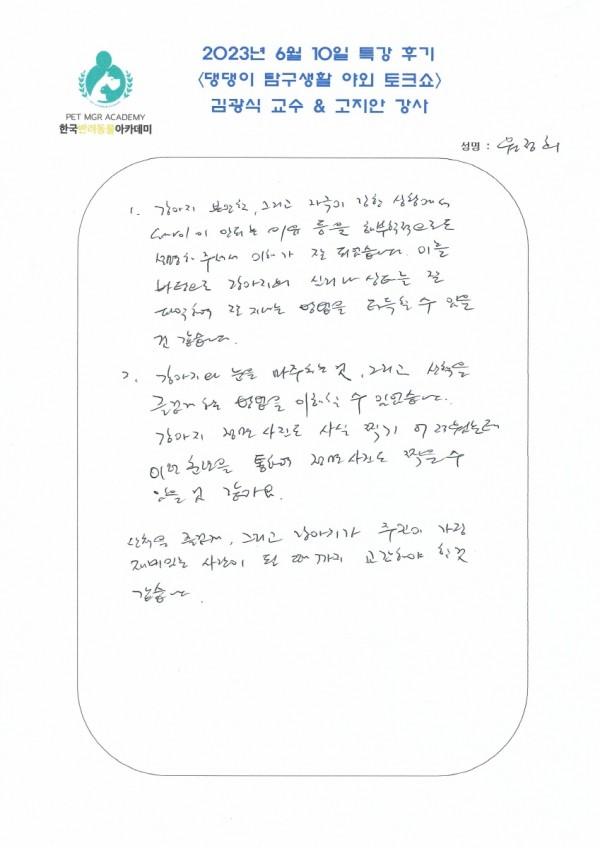 2023년 6월 10일 특강 후기
<댕댕이 탐구생활 야외 토크쇼>
김광식 교수 & 고지안 강사
PET MGR ACADEMY
한국반려동물아카데미
성명 :
1. 강아지 분만한, 그리고 자극이 강한 상황에서
이 안되는 이유 등을 해부학적으로도
설명해 주셔서 이해가 잘 되었습니다. 이를
바탕으로 강아지의 심리나 상태는 잘
파악하여 잘 지내는 방법을 터득할 수 있을
것 같습니다.
2. 강아지와 눈을 마주치는 것, 그리고 산책을
즐겁게 하는 방법을 이해할 수 있었습니다.
강아지 정면 사진도 사실 찍기 어려웠는데
이번 훈련을 통하여 정면 사진도 찍을 수
있을 것 같아요.
산책을 즐겁게, 그리고 강아지가 주인이 가장
재미있는 사람이 될 때까지 교감해야 할 것
같습니다.